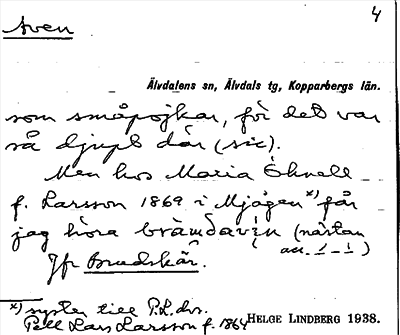 Aven
4
Älvdalens sn, Älvdals tg, Kopparbergs län.
som småpojkar, för det var
så djupt där (sic).
Men hos Maria Öhnell
f. Larsson 1869 i Mjågen*) får
jag höra brändavin (nästan
acc. ⊥ – ⊥ )
Jfr Brudskär.
*) syster till P.L. dvs.
Pell Lars Larsson f. 1864
HELGE LINDBERG 1938.